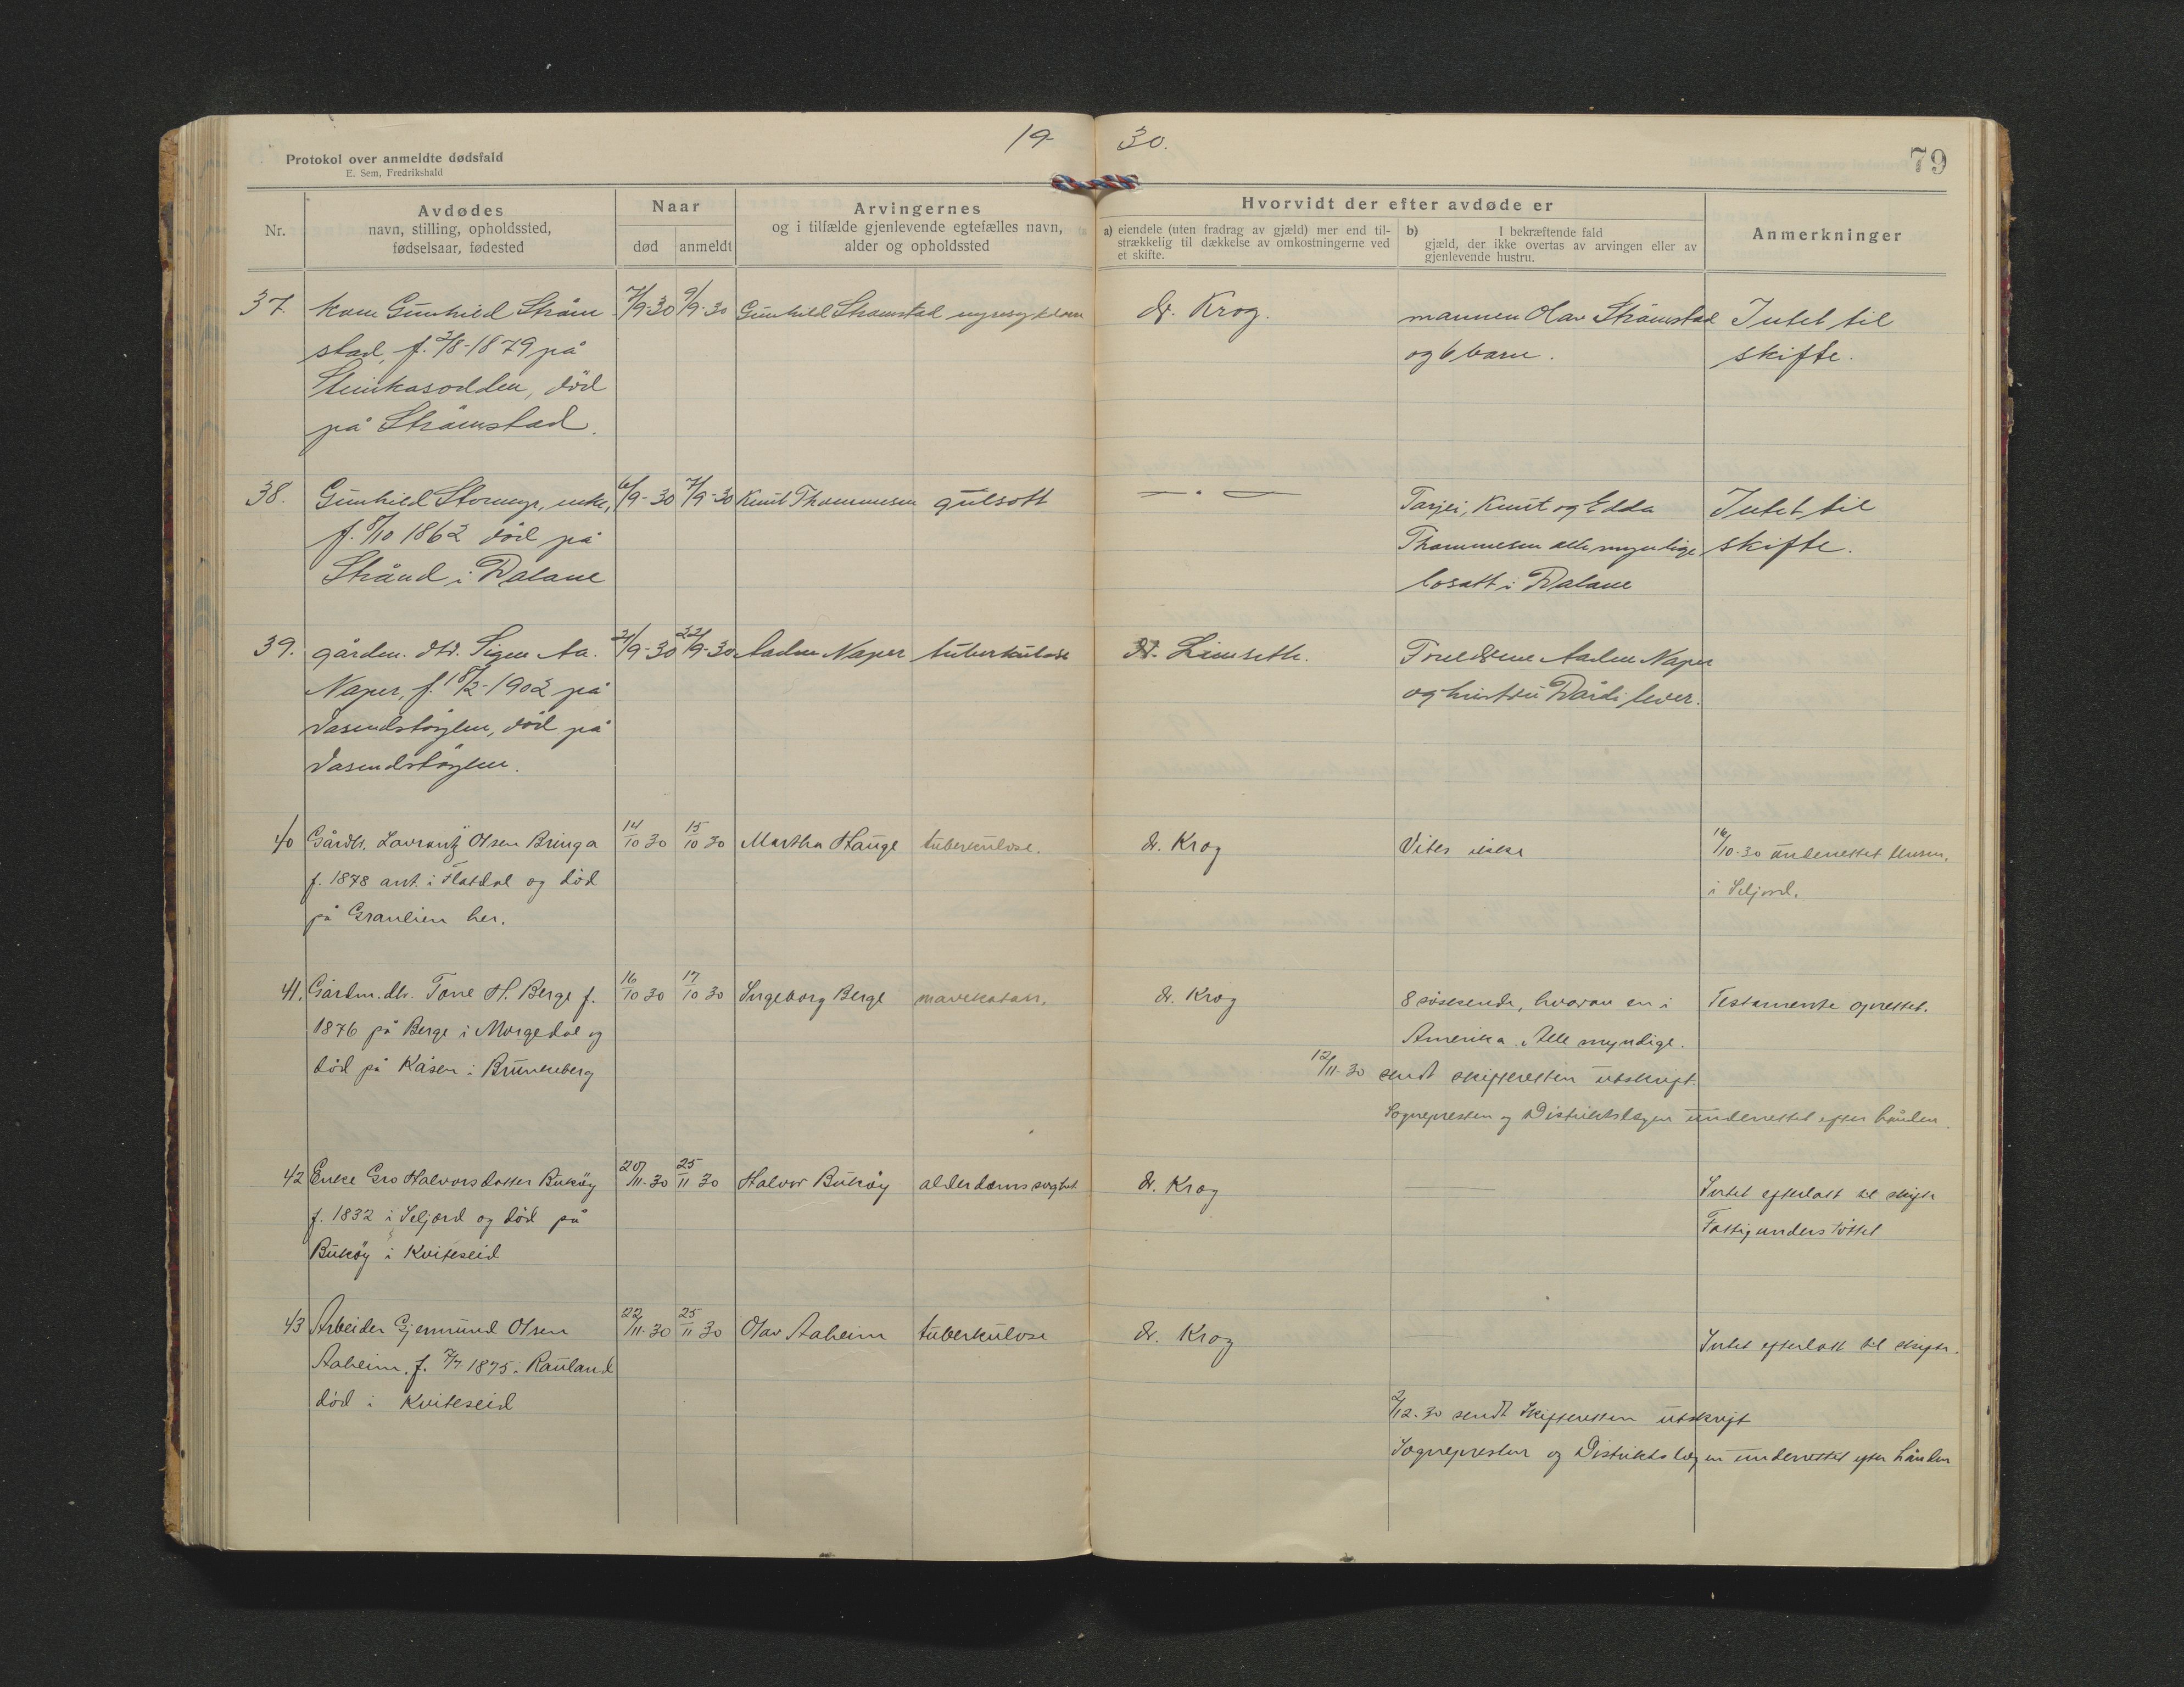 19 30.
79
Protokol over anmeldte dødsfald
E. Sem, Fredrikshald
Nr.
Avdødes
navn, stilling, opholdssted,
fødselsaar, fødested
Naar
død anmeldt
Arvingernes
og i tilfælde gjenlevende egtefælles navn,
alder og opholdssted
Hvorvidt der efter avdøde er
a) eiendele (uten fradrag av gjæld) mer end til-
strækkelig til dækkelse av omkostningerne ved
et skifte.
b) I bekræftende fald
gjæld, der ikke overtas av arvingen eller av
gjenlevende hustru.
Anmerkninger
37. kone Gunhild Ström 7/9-30 9/9-30 Gunhild Strömstad nyresykdom dr. Krog. mannen Olav Strömstad Intet til
stad, f. 3/8-1879 på og 6 barn. skifte.
Steinkasodden, död
på Strömstad.
38. Gunhild Stormyr, enke, 6/9-30 7/9-30 Knut Thommesen gulsott — " — Tarjei, Knut og Edda Intet til
f. 8/10 1862 död på Thommesen alle myndige skifte.
Strånd i Dalane bosatt i Dalane
39. gårdm. dtr. Signe Aa. 21/9-30 22/9-30 Aadne Naper tuberkulose dr. Limseth. Foreldrene Aadne Naper
Naper, f. 18/2-1902 på og hustru Dårdi lever.
Vasendstöylen, död på
Vasendstöylen.
40 Gårdbr. Lavrantz Olsen Bringa 14/10 30 15/10 30 Martha Hauge tuberkulose. dr. Krog Vites ikke 16/10-30 underrettet lensm.
f. 1878 ant. i Flatdal og död i Seljord.
på Granlien her.
41. Gårdm. dtr. Tone H. Berge f. 16/10 30 17/10 30 Ingeborg Berge mavekatarr. dr. Krog 8 söskende, hvorav en i Testamente oprettet.
1876 på Berge i Morgedal og Amerika. Alle myndige.
död på Kåsen i Brunkeberg 12/11-30 sendt skifteretten utskrift.
Sognepresten og Distriktslægen underrettet efter hånden.
42 Enke Gro Halvorsdatter Buköy 20/11-30 25/11 30 Halvor Buköy alderdomssvaghet dr. Krog — Intet efterlatt til skifte
f. 1832 i Seljord og död på Fattigunderstöttet
Buköy i Kviteseid
43 Arbeider Gjermund Olsen 22/11-30 25/11 30 Olav Aaheim tuberkulose dr. Krog Intet efterlatt til skifte.
Aaheim, f. 7/7 1875 i Rauland
död i Kviteseid 2/12-30 sendt Skifteretten utskrift
Sognepresten og Distriktslægen underrettet efter hånden